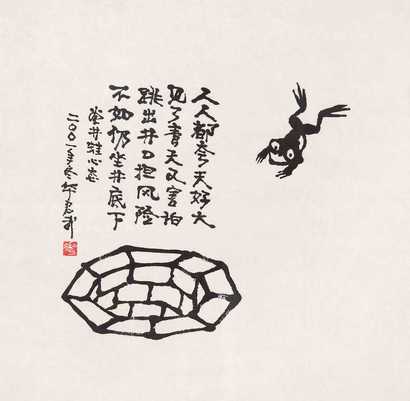 人人都夸天好大
见了青天又害怕
跳出井口担风险
不如仍坐井底下
井蛙心态
二〇〇一年冬华君武